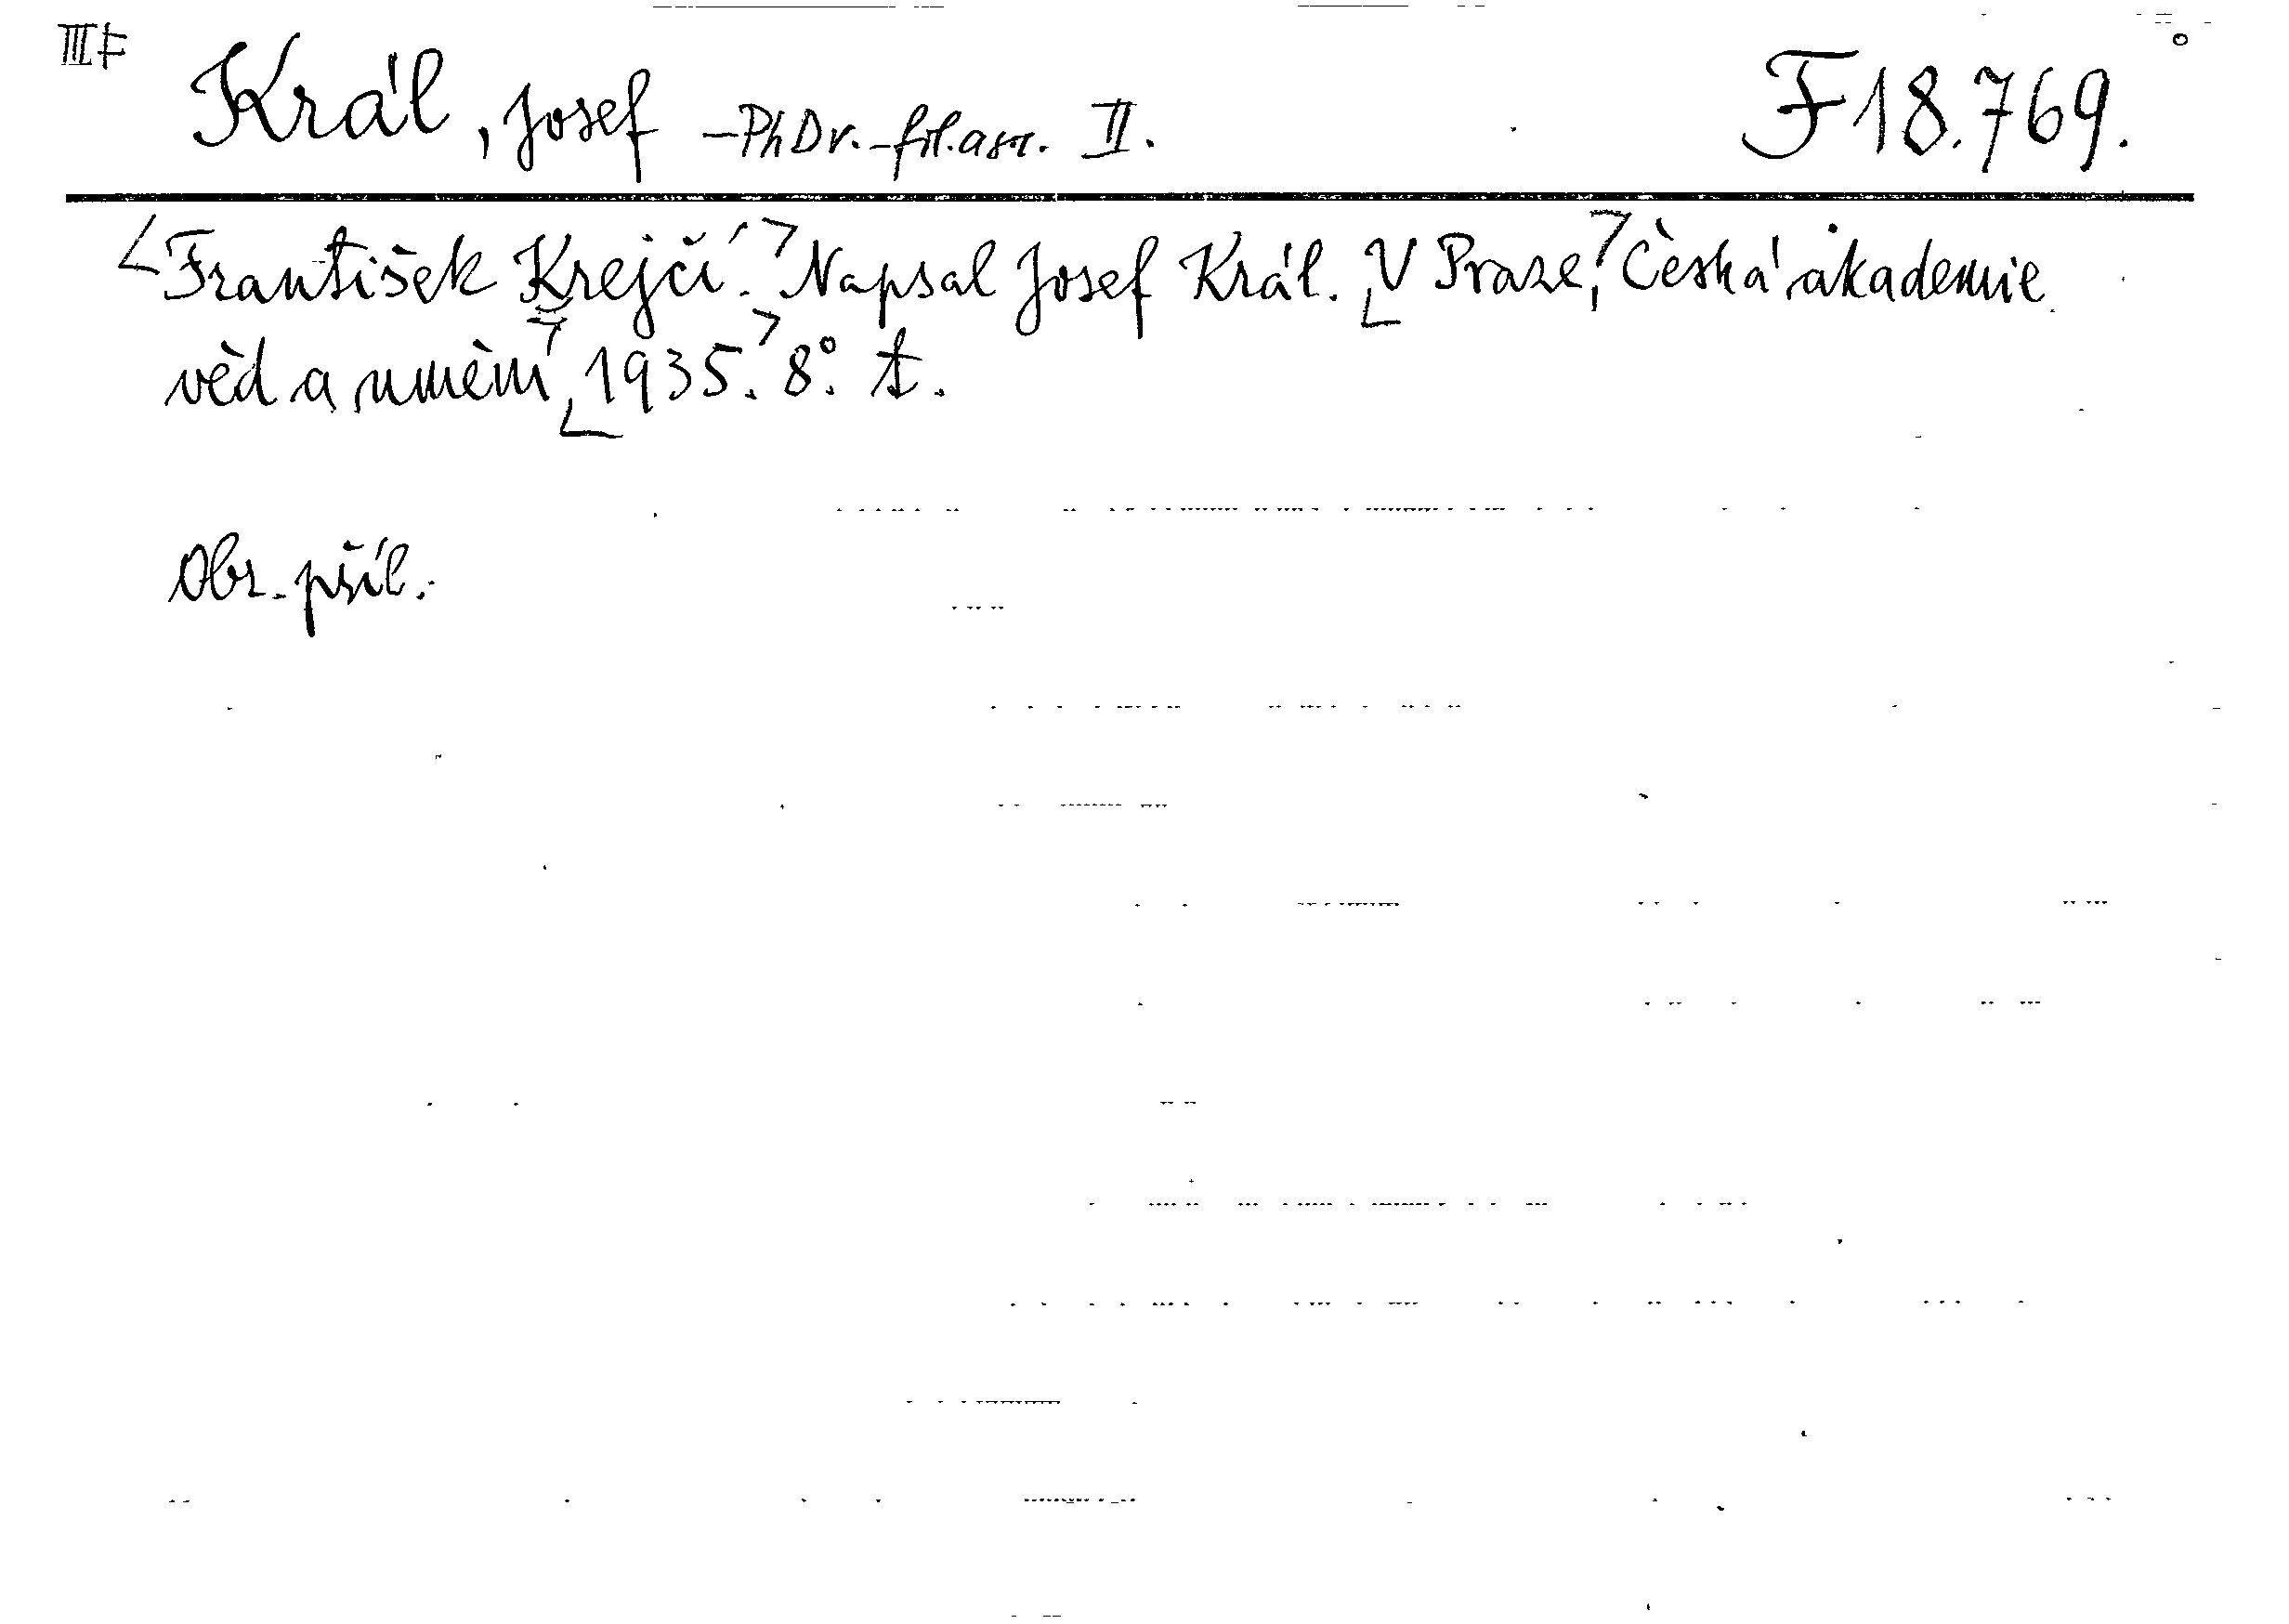 III F
Král, Josef –PhDr.– II. F 18.769.
František Krejčí. Napsal Josef Král. V Praze, Česká akademie
věd a umění, 1935. 8°. t.
Obr. příl.